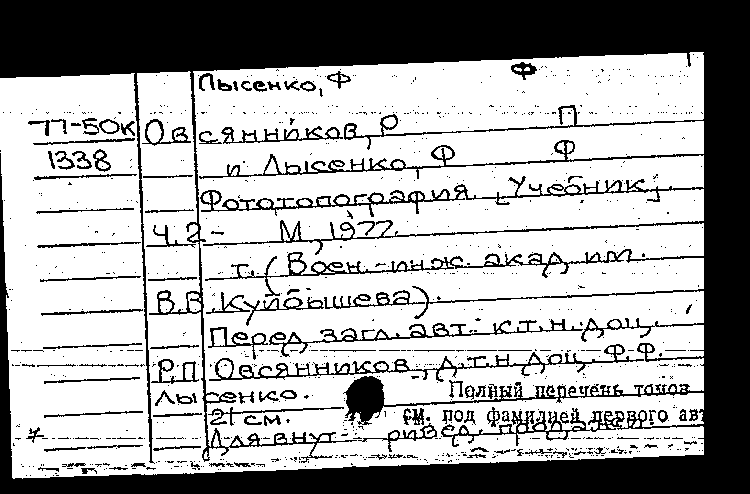 Лысенко, Ф Ф
77-БОК Овсянников, Р П
1338 и Лысенко, Ф Ф
Фототопография. [Учебник].
Ч. 2- М., 1977.
т. (Воен.-инж. акад. им.
В.В. Куйбышева).
Перед загл. авт.: к.т.н. доц.
Р.П. Овсянников, д.т.н. доц. Ф.Ф.
Лысенко. Полный перечень томов
21 см. см. под фамилией первого авт
Для внут- ривед. продажи.